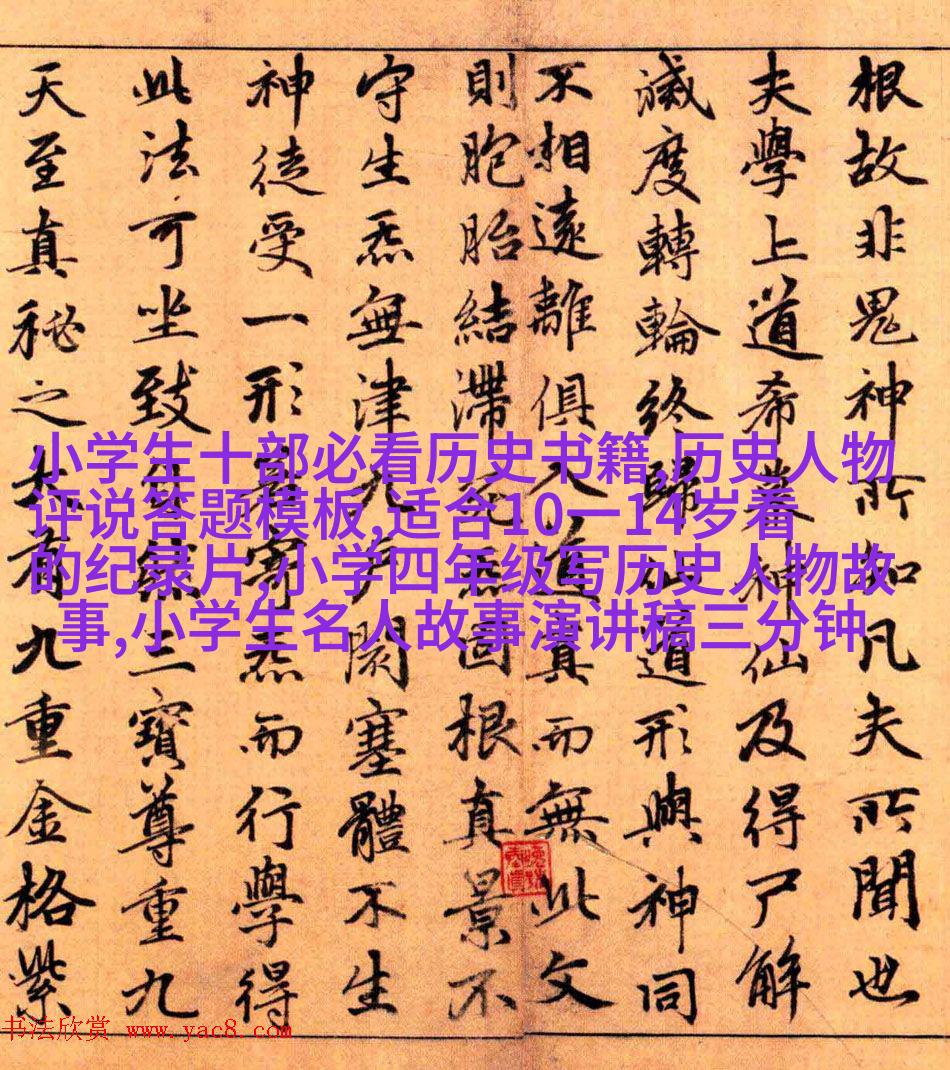 根故非鬼神所知凡夫所聞也
夫學上道希慕神仙及得尸解
滅度轉輪終歸仙道形與神同
不相遠離俱入道真而無此文
則胞胎結滯死炁固根真景不
守生炁無津九戶閡塞體不生
神徒受一形若寄炁而行學得
此法可坐致自然三寶尊重九
天至真秘之太有九重金格紫
小学生十部必看历史书籍,历史人物
评说答题模板,适合10一14岁看
的纪录片,小学四年级写历史人物故
事,小学生名人故事演讲稿三分钟
书法欣赏 www.yac8.com